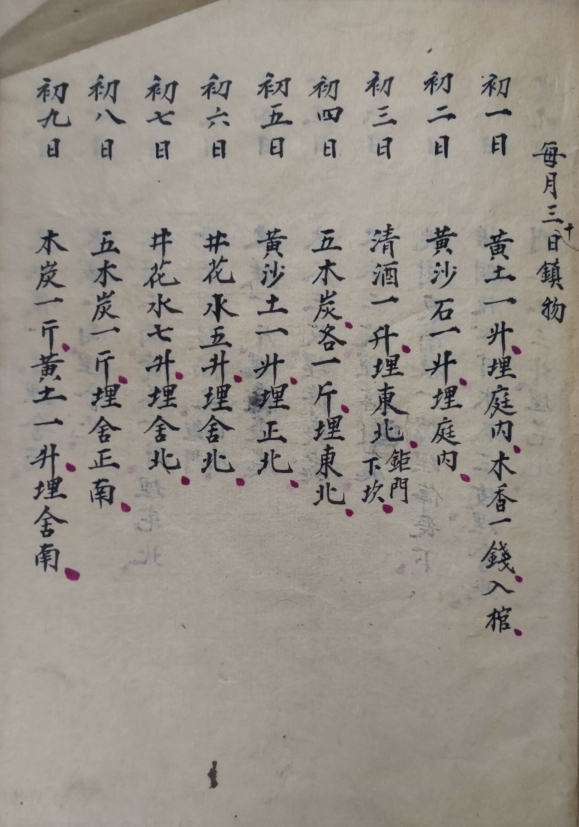 每月三十日鎮物
初一日 黃土一升埋庭内木香一錢入棺
初二日 黃沙石一升埋庭内
初三日 清酒一升埋東北鉅門下坎
初四日 五木炭各一斤埋東北
初五日 黃沙土一升埋正北
初六日 井花水五升埋舍北
初七日 井花水七升埋舍北
初八日 五木炭一斤埋舍正南
初九日 木炭一斤黃土一升埋舍南